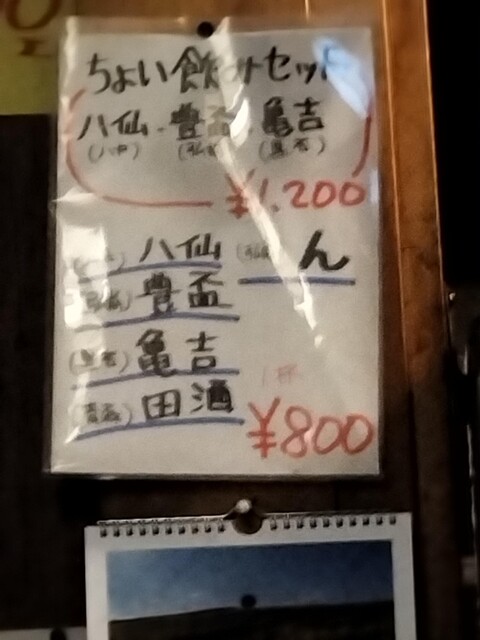 ちょい飲みセット
八仙・豊盃・亀吉
(八戸) (弘前) (黒石)
¥1,200
八仙 (弘前) ん
(弘前) 豊盃
(黒石) 亀吉
(青森) 田酒
1杯
¥800